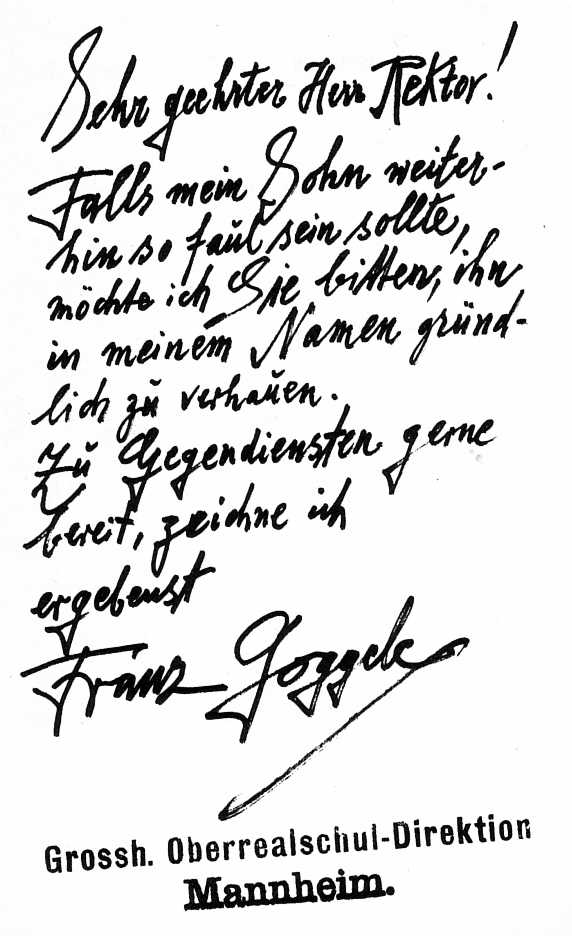 Sehr geehrter Herr Rektor!
Falls mein Sohn weiter-
hin so faul sein sollte,
möchte ich Sie bitten, ihn
in meinem Namen gründ-
lich zu verhauen.
Zu Gegendiensten gerne
bereit, zeichne ich
ergebenst
Franz Goggele
Grossh. Oberrealschul-Direktion
Mannheim.